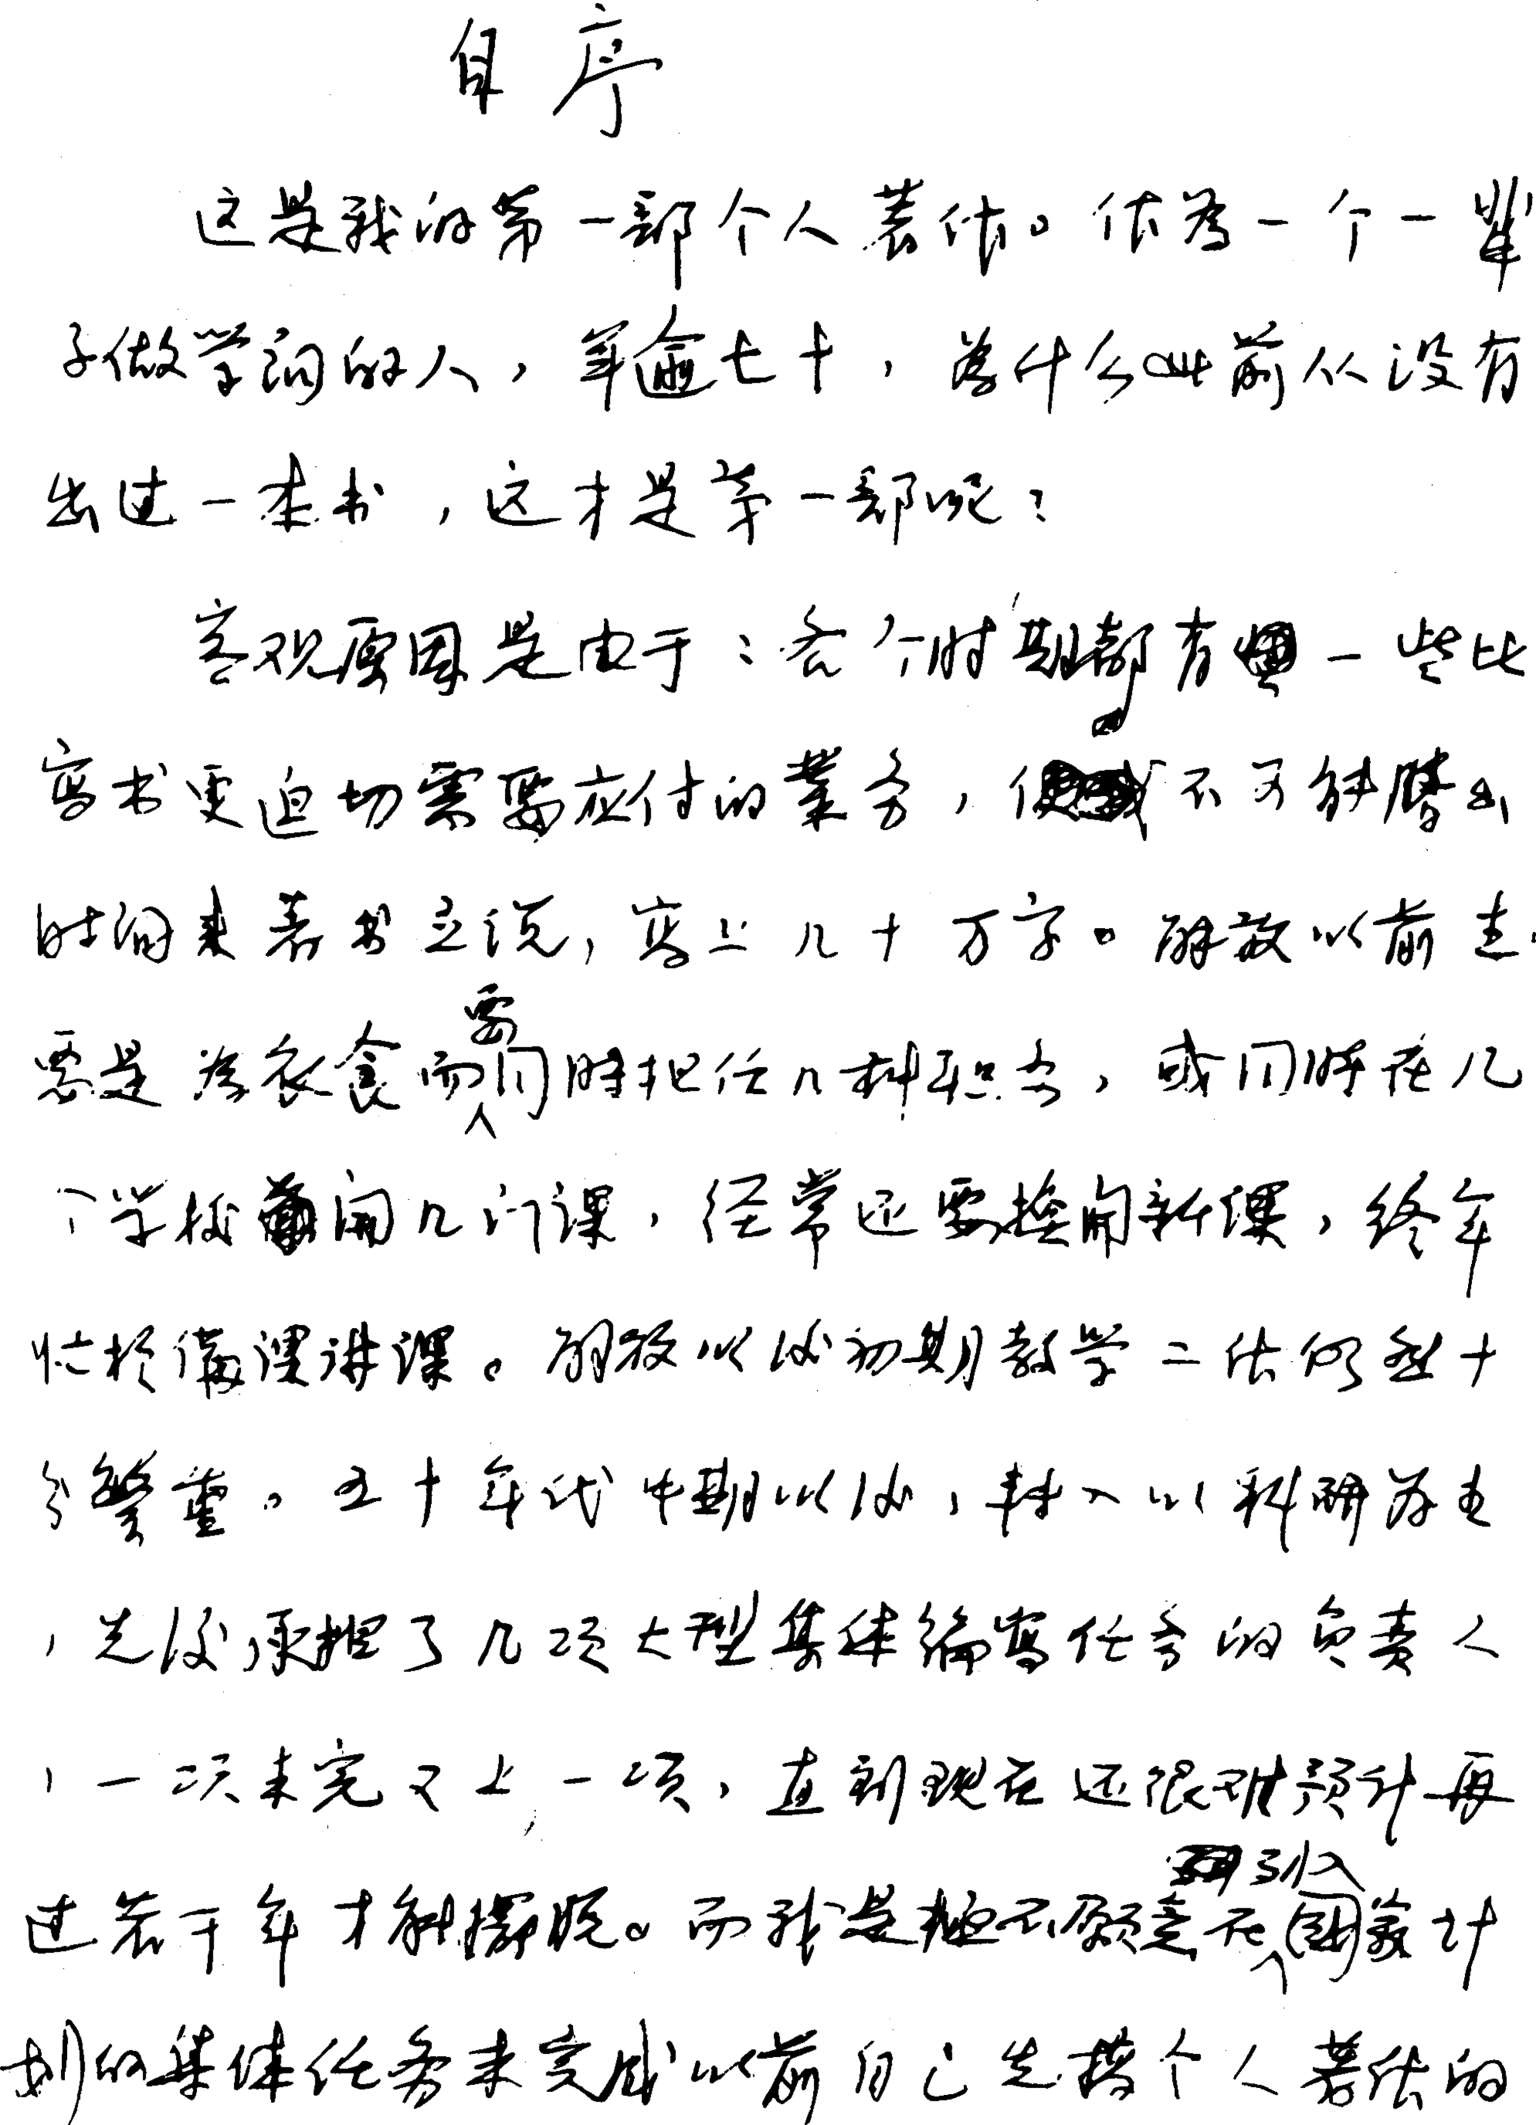 自序
这是我的第一部个人著作。作为一个一辈
子做学问的人，年逾七十，为什么此前从没有
出过一本书，这才是第一部呢？
客观原因是由于：各个时期都有一些比
写书更迫切需要应付的業务，使我不可能腾出
时间来著书立说，写上几十万字。解放以前主
要是为衣食而要同时担任几种职务，或同时在几
个学校开几门课，经常还要换开新课，终年
忙于備课讲课。解放以後初期教学工作仍然十
分繁重。五十年代中期以後，转入以科研为主
，先後承担了几项大型集体编写任务的负责人
，一项未完又上一项，直到现在还很难预计再
过若干年才能摆脱。而我是极不愿意在列入国家计
划的集体任务未完成以前自己先搞个人著作的